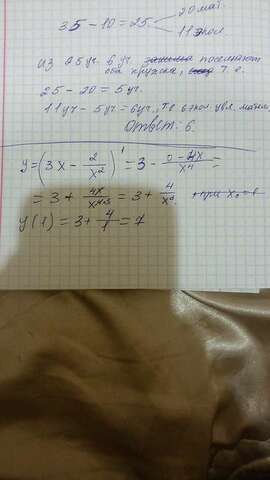 35 - 10 = 25 20 мат.
11 экол.
из 25 уч. 6 уч. посещают
оба кружка, т. е.
25 - 20 = 5 уч.
11 уч - 5 уч = 6 уч, те 6 экол. увл. матем.
Ответ: 6.
y = (3x - 2/x²)' = 3 - (0 - 4x)/x⁴ =
= 3 + 4x/x⁴ = 3 + 4/x³ при x₀ = 1
y(1) = 3 + 4/1 = 7